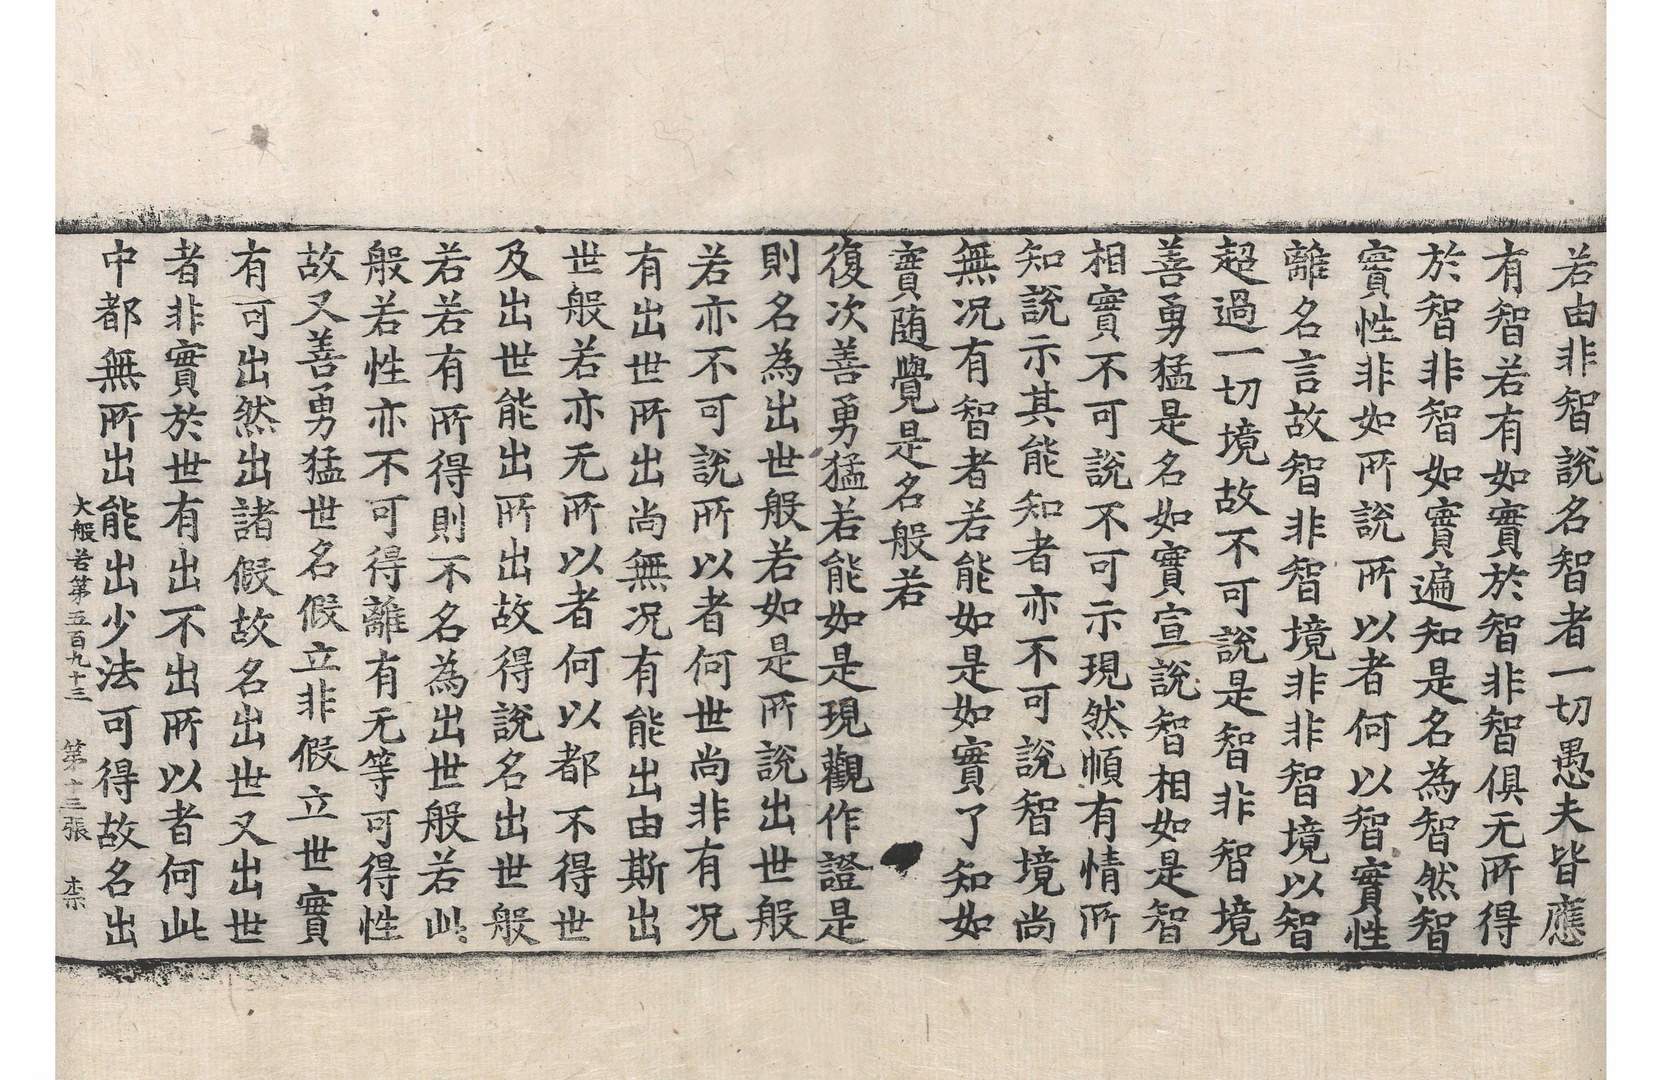 若由非智說名智者一切愚夫皆應
有智若有如實於智非智俱无所得
於智非智如實遍知是名為智然智
實性非如所說所以者何以智實性
離名言故智非智境非非智境以智
超過一切境故不可說是智非智境
善勇猛是名如實宣說智相如是智
相實不可說不可示現然順有情所
知說示其能知者亦不可說智境尚
無况有智者若能如是如實了知如
實随覺是名般若
復次善勇猛若能如是現觀作證是
則名為出世般若如是所說出世般
若亦不可說所以者何世尚非有况
有出世所出尚無况有能出由斯出
世般若亦无所以者何以都不得世
及出世能出所出故得說名出世般
若若有所得則不名為出世般若此
般若性亦不可得離有无等可得性
故又善勇猛世名假立非假立世實
有可出然出諸假故名出世又出世
者非實於世有出不出所以者何此
中都無所出能出少法可得故名出
大般若第五百九十三 第十三張 柰